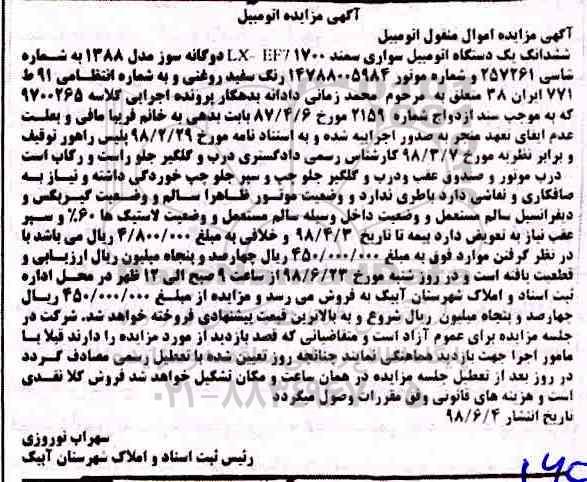 آگهی مزایده اتومبیل
آگهی مزایده اموال منقول اتومبیل
ششدانگ یک دستگاه اتومبیل سواری سمند LX- EF7 1700 دوگانه سوز مدل 1388 به شماره
شاسی 257261 و شماره موتور 14788005984 رنگ سفید روغنی و به شماره انتظامی 91 ط
771 ایران 38 متعلق به مرحوم محمد زمانی دادانه بدهکار پرونده اجرایی کلاسه 9700265
که به موجب سند ازدواج شماره 2159 مورخ 87/4/6 بابت بدهی به خانم فریبا مافی و بعلت
عدم ایفای تعهد منجر به صدور اجراییه شده و به استناد نامه مورخ 98/2/29 پلیس راهور توقیف
و برابر نظریه مورخ 98/3/7 کارشناس رسمی دادگستری درب و گلگیر جلو راست و رکاب است
درب موتور و صندوق عقب ودرب و گلگیر جلو چپ و سپر جلو چپ خوردگی داشته و نیاز به
صافکاری و نقاشی دارد باطری ندارد و وضعیت موتور ظاهرا سالم و وضعیت گیربکس و
دیفرانسیل سالم مستعمل و وضعیت داخل وسیله سالم مستعمل و وضعیت لاستیک ها 60% و سپر
عقب نیاز به تعویض دارد بیمه تا تاریخ 98/4/3 و خلافی به مبلغ 4/800/000 ریال می باشد با
در نظر گرفتن موارد فوق به مبلغ 450/000/000 ریال چهارصد و پنجاه میلیون ریال ارزیابی و
قطعیت یافته است و در روز شنبه مورخ 98/6/23 از ساعت 9 صبح الی 12 ظهر در محل اداره
ثبت اسناد و املاک شهرستان آبیک به فروش می رسد و مزایده از مبلغ 450/000/000 ریال
چهارصد و پنجاه میلیون ریال شروع و به بالاترین قیمت پیشنهادی فروخته خواهد شد. شرکت در
جلسه مزایده برای عموم آزاد است و متقاضیانی که قصد بازدید از مورد مزایده را دارند قبلا با
مامور اجرا جهت بازدید هماهنگی نمایند چنانچه روز تعیین شده با تعطیل رسمی مصادف گردد
در روز بعد از تعطیل جلسه مزایده در همان ساعت و مکان تشکیل خواهد شد فروش کلا نقدی
است و هزینه های قانونی وفق مقررات وصول میگردد
تاریخ انتشار 98/6/4
سهراب نوروزی
رئیس ثبت اسناد و املاک شهرستان آبیک